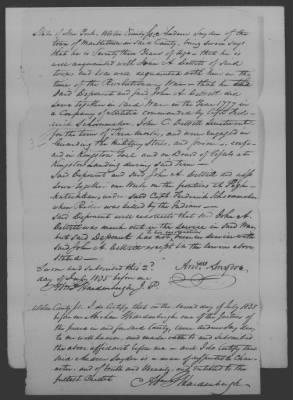 State of New York Ulster County ss. Andrew Snyder of the
town of Marbletown in said County, being sworn says
that he is Seventy Three Years of age - that he is
well acquainted with John A. DeWitt of said
town and was well acquainted with him in the
time of the Revolutionary War - that he this
said Deponent and said John A. DeWitt did
serve together in said War in the Year 1777 in
a Company of Militia commanded by Capt. Fred-
erick Schoonmaker John C. DeWitt Lieutenant
for the term of three months, and were engaged in
Guarding the Military Stores, and prisoners conf-
ined in Kingston Jail and on Board of Vessels at
Kingston Landing during said term -
Said Deponent and said John A. DeWitt did also
serve together one Month on the frontiers at Pagh-
katackkan, under said Capt. Frederick Schoonmaker
when was killed by the Indians -
Said Deponent well recollects that said John A.
DeWitt was much out in the service in said War
but said Deponent has not been in service with
said John A. DeWitt except in the towns above
stated -
Sworn and Subscribed this 2d
day of July 1835 before me
Abm. J. Hardenbergh J. P.
Andries Snyder
Ulster County ss. I do Certify that on the second day of July 1835
before me Abraham J. Hardenbergh one of the Justices of
the peace in and for said County, came Andrew Snyder,
to me well known, and made oath to and subscribed
the above affidavit before me - and I do certify that
said Andrew Snyder is a man of respectable Charac-
ter, and of truth and Veracity, and entitled to the
fullest Credit
Abm. J. Hardenbergh